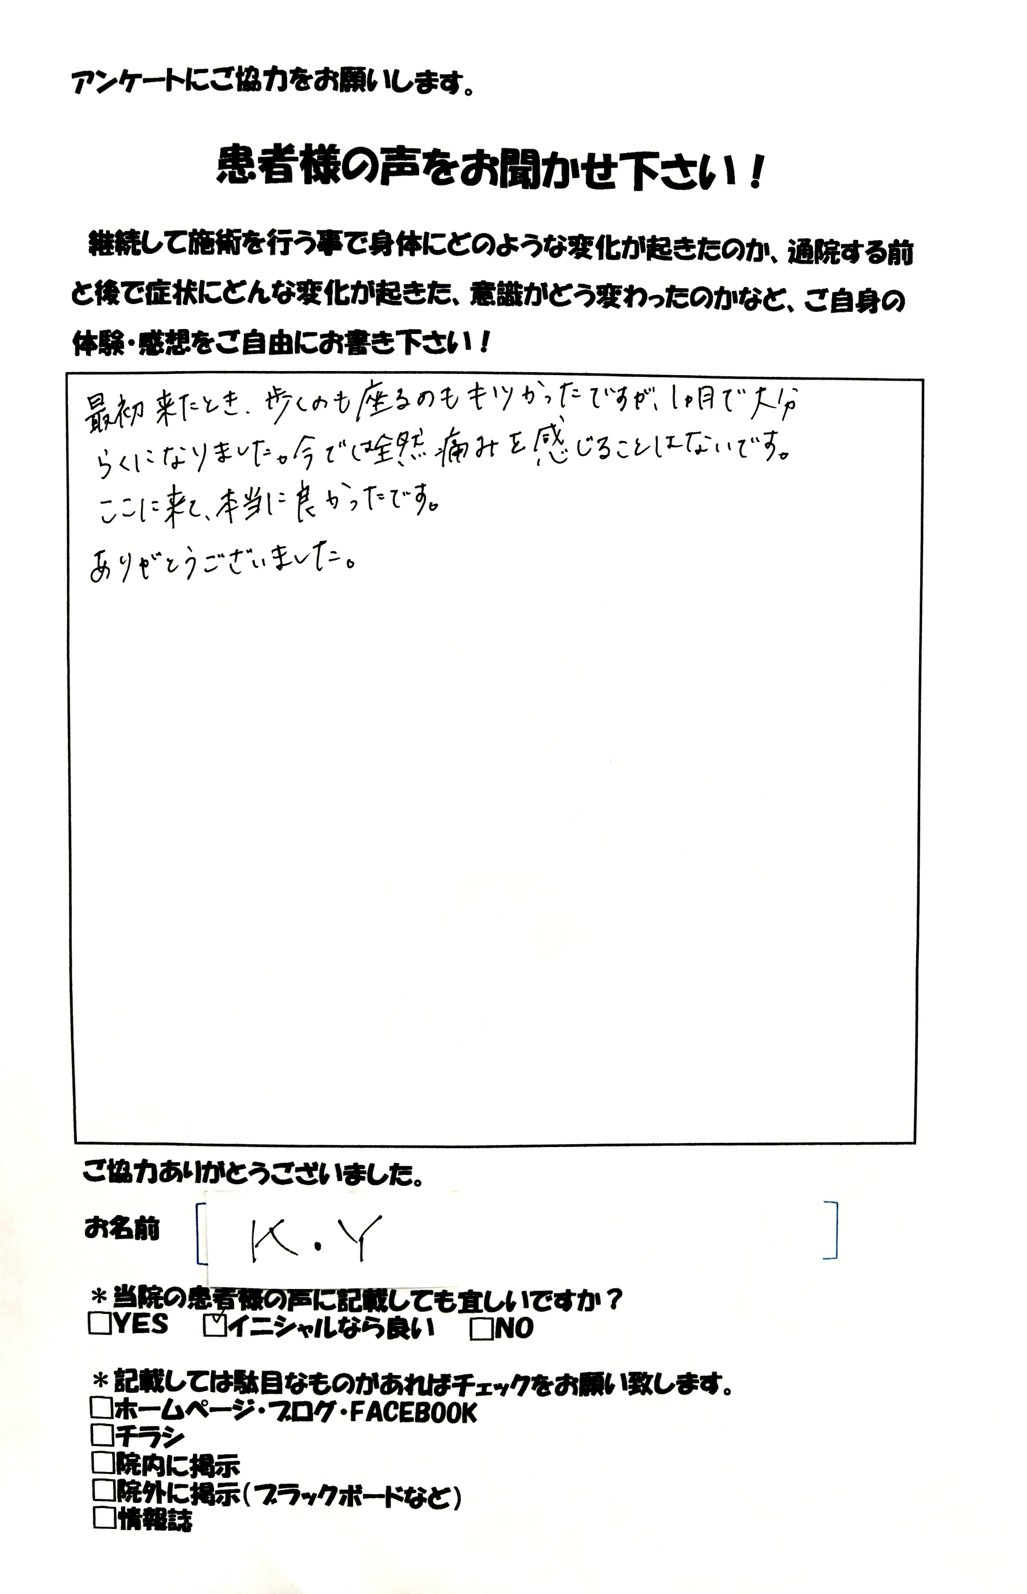 アンケートにご協力をお願いします。
患者様の声をお聞かせ下さい！
継続して施術を行う事で身体にどのような変化が起きたのか、通院する前
と後で症状にどんな変化が起きた、意識がどう変わったのかなど、ご自身の
体験・感想をご自由にお書き下さい！
最初来たとき、歩くのも座るのもキツかったですが、1ヶ月で大分
らくになりました。今では全然痛みを感じることはないです。
ここに来て、本当に良かったです。
ありがとうございました。
ご協力ありがとうございました。
お名前 [ K.Y ]
＊当院の患者様の声に記載しても宜しいですか？
□YES ☑イニシャルなら良い □NO
＊記載しては駄目なものがあればチェックをお願い致します。
□ホームページ・ブログ・FACEBOOK
□チラシ
□院内に掲示
□院外に掲示（ブラックボードなど）
□情報誌